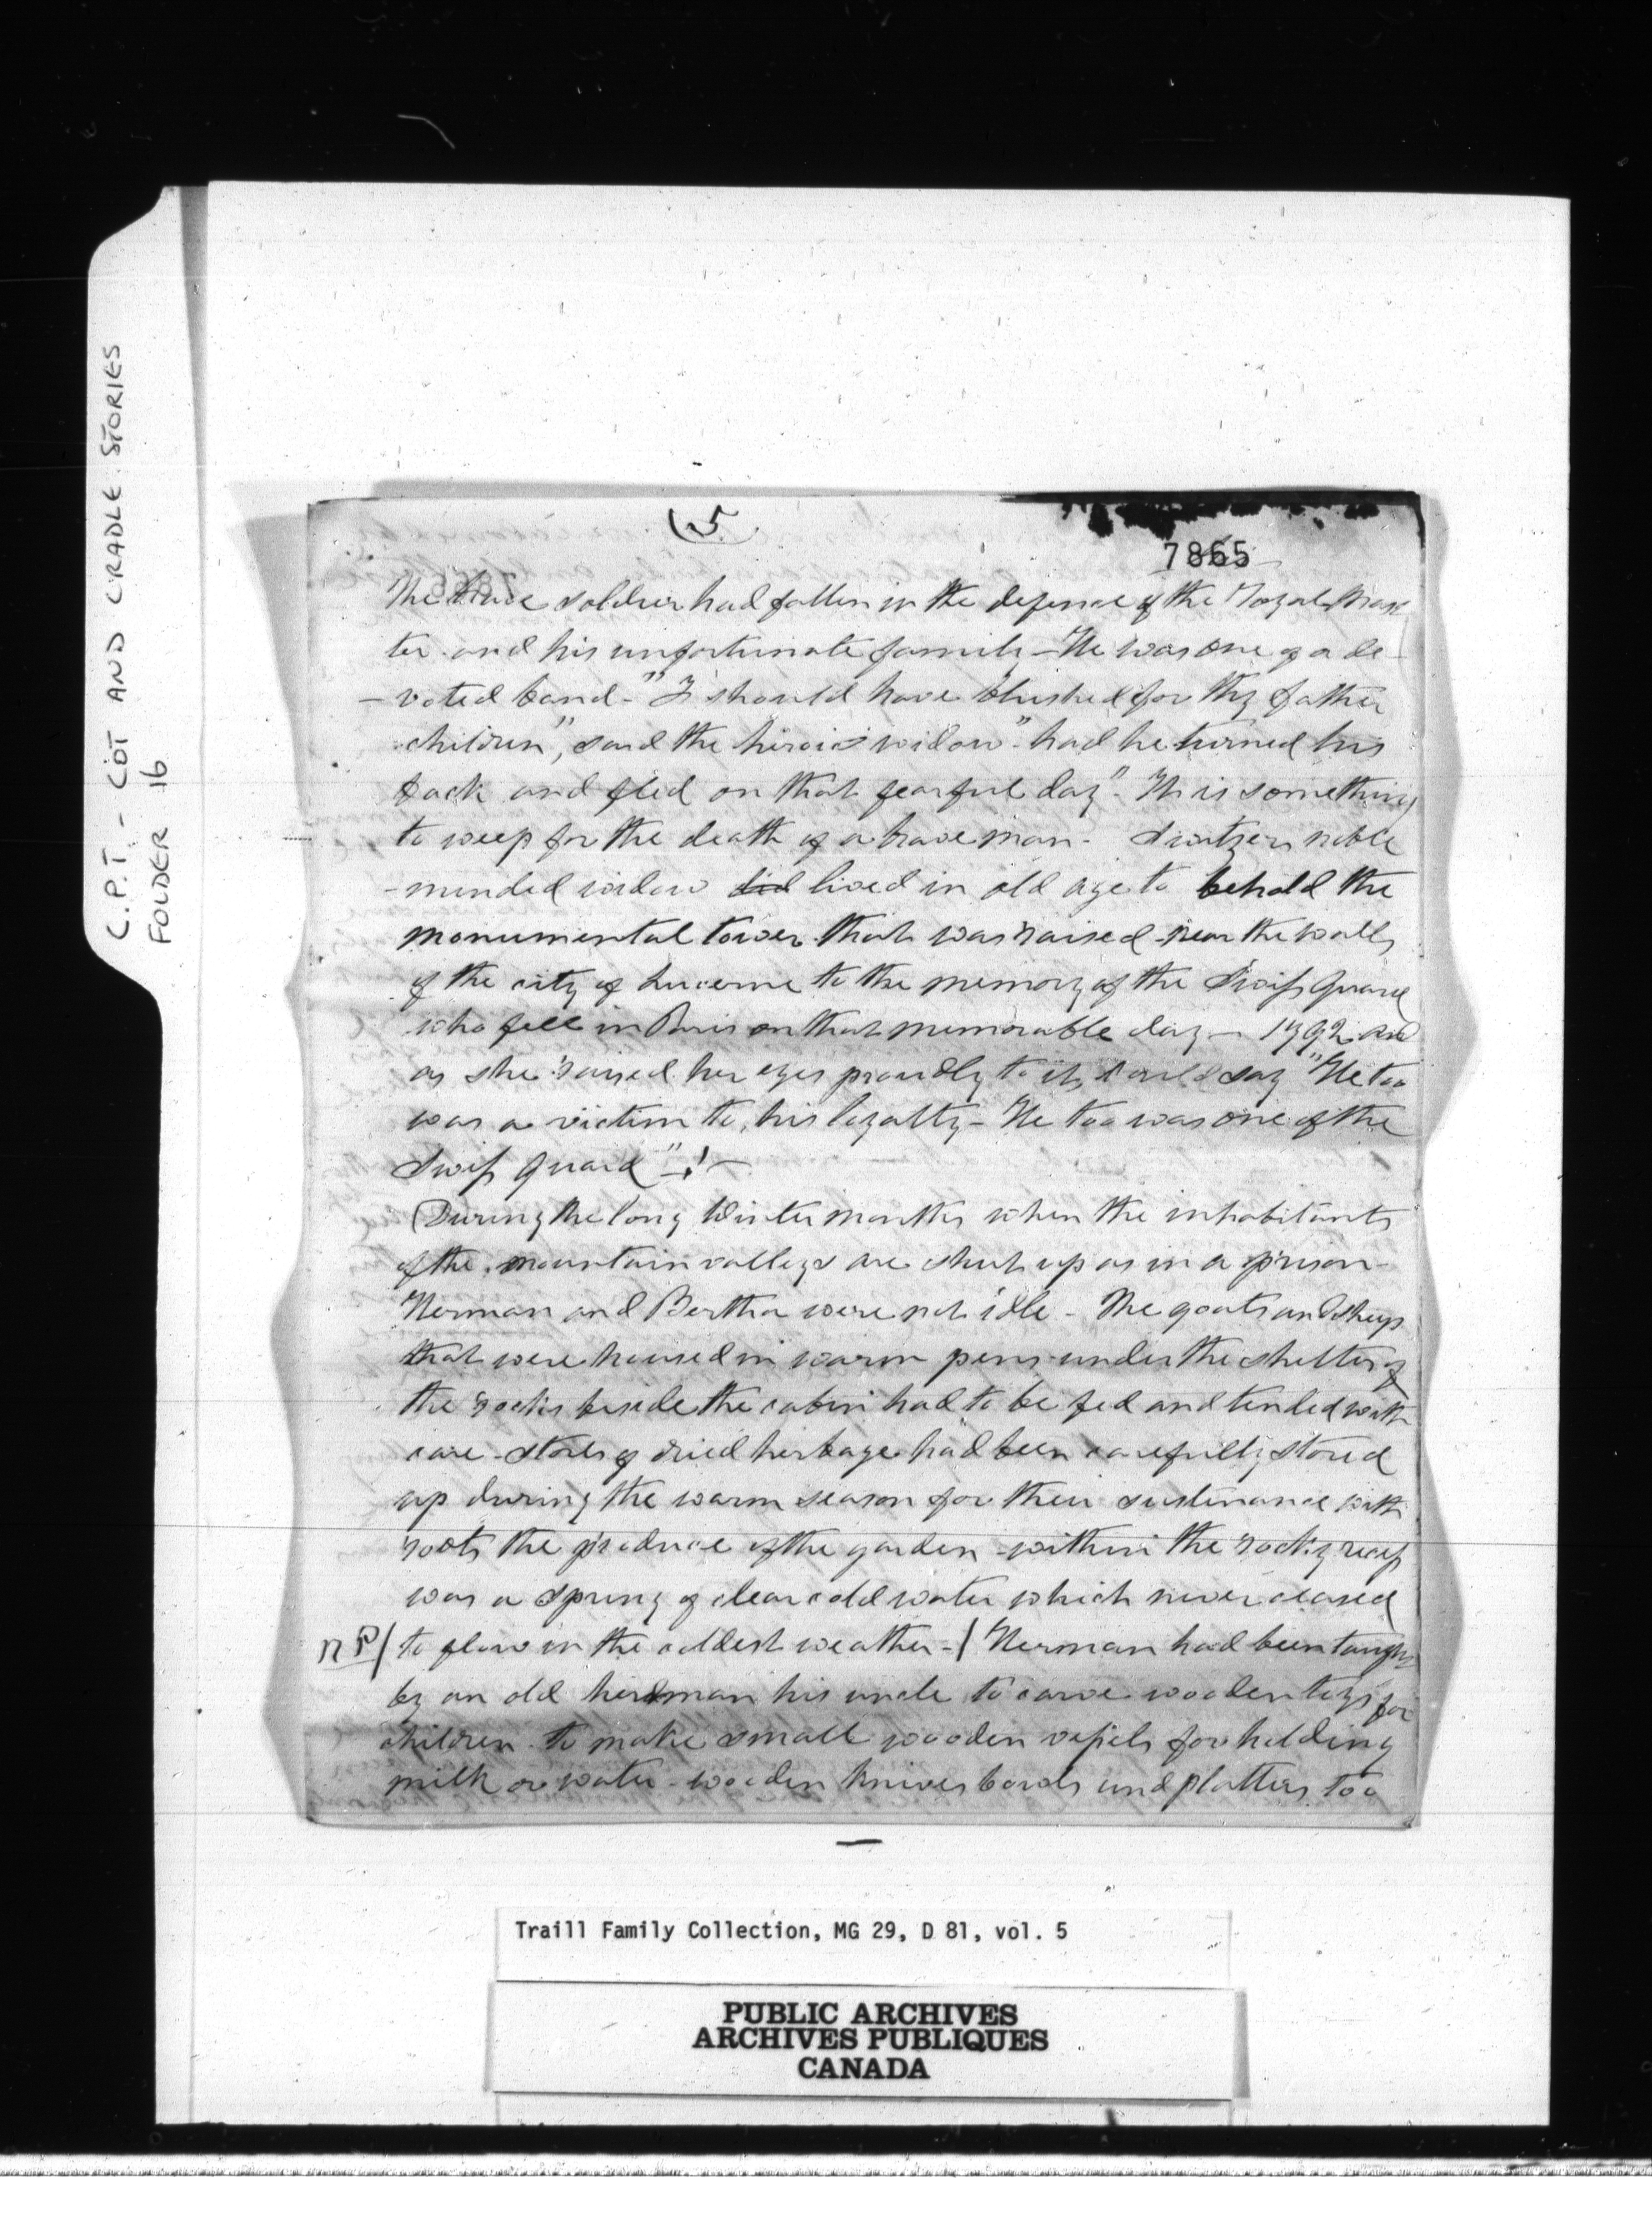 C.P.T. - COT AND CRADLE STORIES
FOLDER 16
(5
7865
The brave soldier had fallen in the defence of the Royal Mas
ter and his unfortunate family - He was one of a de
- voted band - "I should have blushed for thy father
children", said the heroic widow "had he turned his
back and fled on that fearful day". It is something
to weep for the death of a brave man - Switzers noble
- minded widow did lived in old age to behold the
monumental tower that was raised near the walls
of the city of Lucerne to the memory of the Swiss Guard
who fell in Paris on that memorable day - 1792 and
as she raised her eyes proudly to it, would say "He too
was a victim to his loyalty - He too was one of the
Swiss Guard" - ! -
(During the long Winter months when the inhabitants
of the mountain valleys are shut up as in a prison -
Herman and Bertha were not idle - The goats and sheep
that were housed in warm pens under the shelter of
the rocks beside the cabin had to be fed and tended with
care - stores of dried herbage had been carefully stored
up during the warm season for their sustinance with
roots the produce of the garden - within the rocky recess
was a spring of clear cold water which never ceased
NP/ to flow in the coldest weather - / Herman had been taught
by an old herdman his uncle to carve wooden toys for
children to make small wooden vessels for holding
milk or water - wooden knives bowls and platters too
Traill Family Collection, MG 29, D 81, vol. 5
PUBLIC ARCHIVES
ARCHIVES PUBLIQUES
CANADA